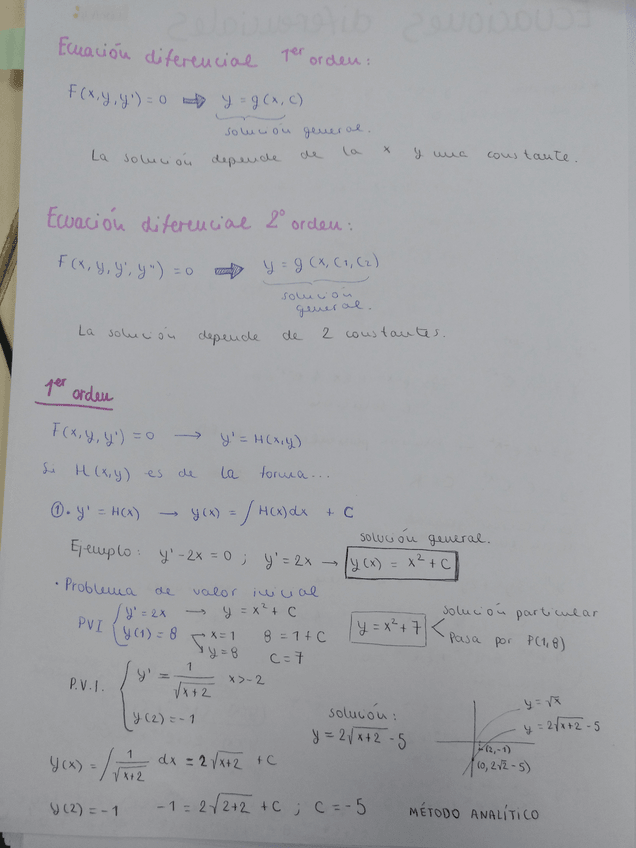 Ecuación diferencial 1er orden:
F(x,y,y') = 0 ⇒ y = g(x,C)
solución general.
La solución depende de la x y una constante.
Ecuación diferencial 2º orden:
F(x,y,y',y'') = 0 ⇒ y = g(x,C1,C2)
solución
general.
La solución depende de 2 constantes.
1er orden
F(x,y,y') = 0 → y' = H(x,y)
Si H(x,y) es de la forma...
①. y' = H(x) → y(x) = ∫H(x)dx + C
solución general.
Ejemplo: y'-2x = 0 ; y' = 2x → y(x) = x² + C
• Problema de valor inicial
PVI { y' = 2x → y = x² + C
y(1) = 8 x=1 8 = 1 + C
y=8 C = 7
y = x² + 7 < solución particular
Pasa por P(1,8)
P.V.I. { y' = 1/√(x+2) x>-2
y(2) = -1
solución:
y = 2√(x+2) - 5
y = √x
y = 2√(x+2) - 5
(2,-1)
(0, 2√2 - 5)
y(x) = ∫ 1/√(x+2) dx = 2√(x+2) + C
y(2) = -1 -1 = 2√(2+2) + C ; C = -5 MÉTODO ANALÍTICO